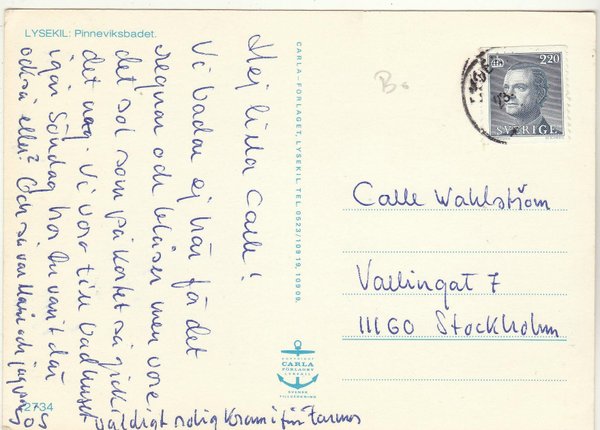 LYSEKIL: Pinneviksbadet.
Hej lilla Calle!
Vi badar ej här få det
regnar och blåser men vore
det sol som på kortet så gick
det nog. Vi vora till badhuset
igår Söndag har Du varit där
också eller? Och så var Mari och jag
SOS
väldigt rolig Kram ifrån Farmor
2734
CARLA-FÖRLAGET, LYSEKIL. TEL. 0523/109 19, 109 09.
COPYRIGHT
CARLA
FÖRLAGET
LYSEKIL
SVENSK
TILLVERKNING
B.
220
SVERIGE
Calle Wahlström
Vallingat 7
11160 Stockholm